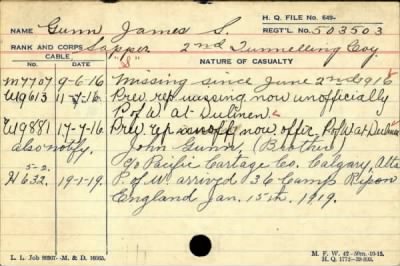 H. Q. FILE No. 649-
NAME Gunn James S. REGT'L. No. 503503
RANK AND CORPS Sapper 2nd Tunnelling Coy.
CABLE "S" NATURE OF CASUALTY
No. DATE
M7707 9-6-16 Missing since June 2nd 916
W9613 11-7-16 Prev. rep. missing now unofficially
P of W at Dulmen
W9881 17-7-16 Prev rep unoff now offic. P of W at Dulmen
also notify. John Gunn, (Brother)
5-2. c/o Pacific Cartage Co. Calgary, Alta
H632. 19-1-19. P. of W. arrived 36 Camp Ripon
England Jan. 15th. 1919.
L. L. Job M. & D.
M. F. W. 42
H. Q. 1772-39-893.